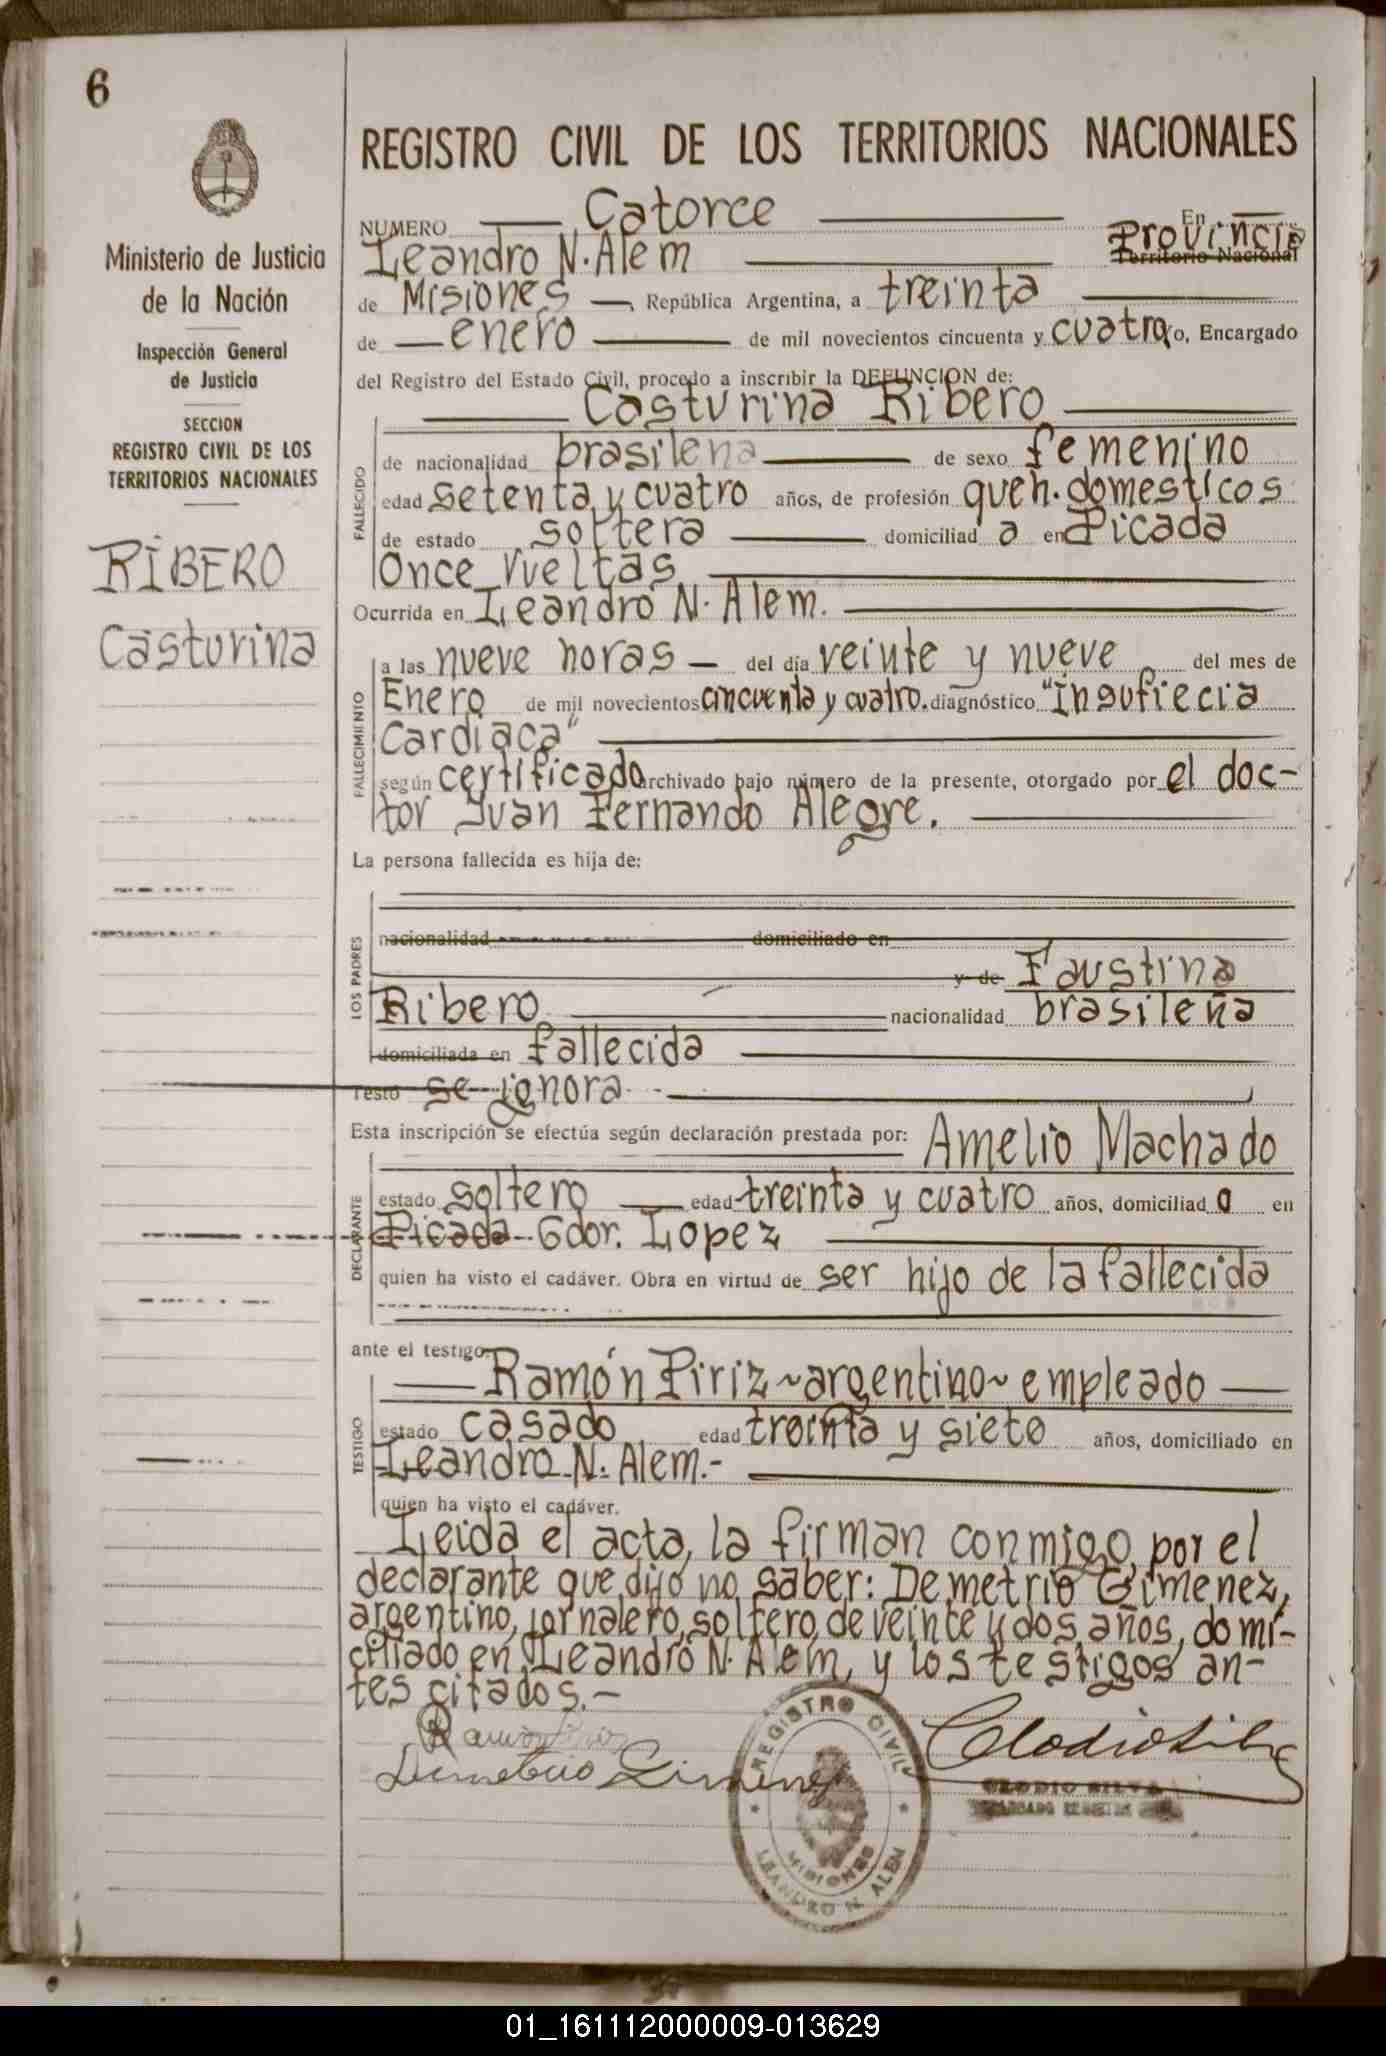 6
Ministerio de Justicia
de la Nación
Inspección General
de Justicia
SECCION
REGISTRO CIVIL DE LOS
TERRITORIOS NACIONALES
RIBERO
Casturina
REGISTRO CIVIL DE LOS TERRITORIOS NACIONALES
NUMERO Catorce En
Leandro N. Alem Provincia Territorio Nacional
de Misiones, República Argentina, a treinta
de enero de mil novecientos cincuenta y cuatro, Encargado
del Registro del Estado Civil, procedo a inscribir la DEFUNCION de:
Casturina Ribero
FALLECIDO
de nacionalidad brasilena de sexo femenino
edad setenta y cuatro años, de profesión queh. domesticos
de estado soltera domiciliad a en Picada
Once Vueltas
Ocurrida en Leandro N. Alem.
FALLECIMIENTO
a las nueve horas — del día veinte y nueve del mes de
Enero de mil novecientos cincuenta y cuatro. diagnóstico "Insufiecia
Cardiaca"
según certificado archivado bajo número de la presente, otorgado por el doc-
tor Juan Fernando Alegre.
La persona fallecida es hija de:
LOS PADRES
nacionalidad domiciliado en
y de Faustina
Ribero nacionalidad brasileña
domiciliada en fallecida
Testó se ignora
Esta inscripción se efectúa según declaración prestada por: Amelio Machado
DECLARANTE
estado soltero edad treinta y cuatro años, domiciliad o en
Picada Gdor. Lopez
quien ha visto el cadáver. Obra en virtud de ser hijo de la fallecida
ante el testigo
Ramón Piriz ~ argentino ~ empleado
TESTIGO
estado casado edad treinta y siete años, domiciliado en
Leandro N. Alem.-
quien ha visto el cadáver.
Leida el acta, la firman conmigo, por el
declarante que dijo no saber: Demetrio Gimenez,
argentino, jornalero, soltero, de veinte y dos años, domi-
ciliado en Leandro N. Alem, y los testigos an-
tes citados.-
Ramón Piriz
Demetrio Gimenez
Clodio Silva
CLODIO SILVA
REGISTRO CIVIL
MISIONES
LEANDRO N. ALEM
01_161112000009-013629